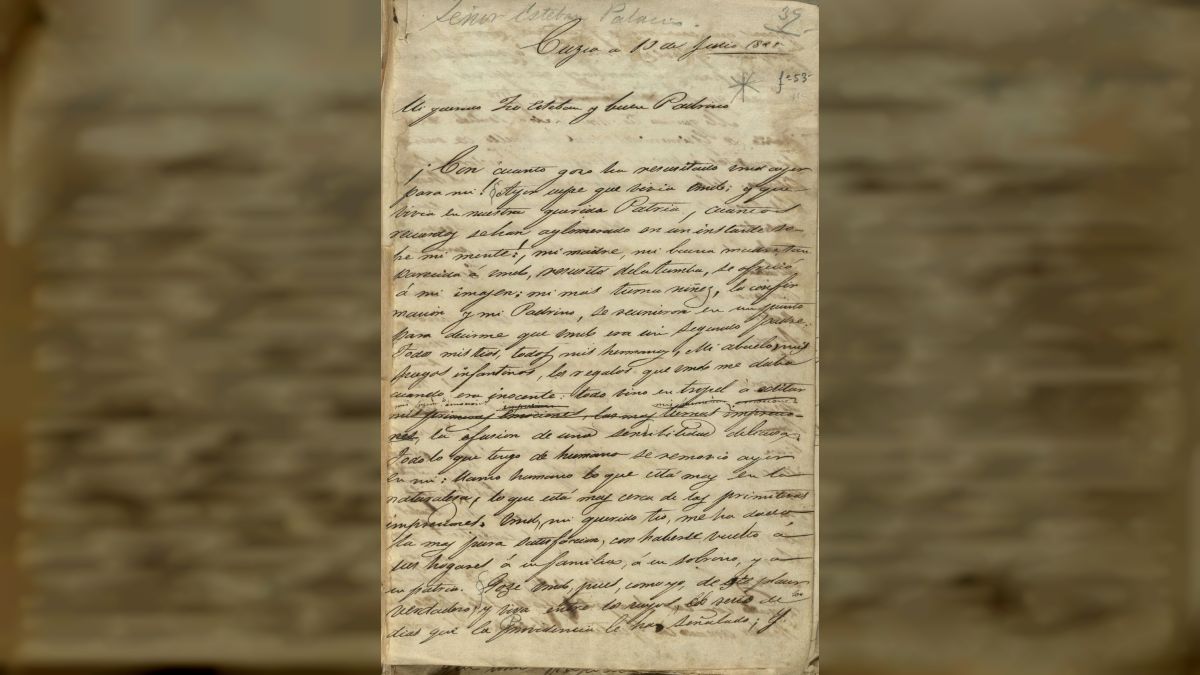 Señor Esteban Palacios.
39
Cuzco a 10 de Julio 1825
fº 53
Mi querido Tio Esteban y buen Padrino
¡Con cuanto gozo ha resucitado vmd ayer
para mi! Ayer supe que vivia vmd; y que
vivia en nuestra querida Patria, cuantos
recuerdos se han aglomerado en un instante so-
bre mi mente!, mi madre, mi buena madre tan
parecida á vmd, resucitó de la tumba, se ofreció
á mi imajen; mi mas tierna niñez, la confir
macion y mi Padrino, se reunieron en un punto
para decirme que vmd era mi segundo Padre.
Todos mis tios, todos mis hermanos, Mi abuelo, mis
juegos infantinos, los regalos que vmd me daba
cuando era inocente: todo vino en tropel á exitar
mis primeras emociones
primeras emociones, las mas tiernas impresio-
nes, la efusion de una sensibilidad delicada.
Todo lo que tengo de humano se removió ayer
en mi: llamo humano lo que está mas en la
naturalesa, lo que está mas cerca de las primitivas
impresiones. Vmd, mi querido tio, me ha dado
la mas pura satisfaccion, con haberse vuelto á
sus hogares á su familia, á su sobrino, y a
su patria. Goze vmd pues, como yo, de este placer
verdadero; y viva entre los suyos, el resto de los
dias que la Providencia le ha señalado; y